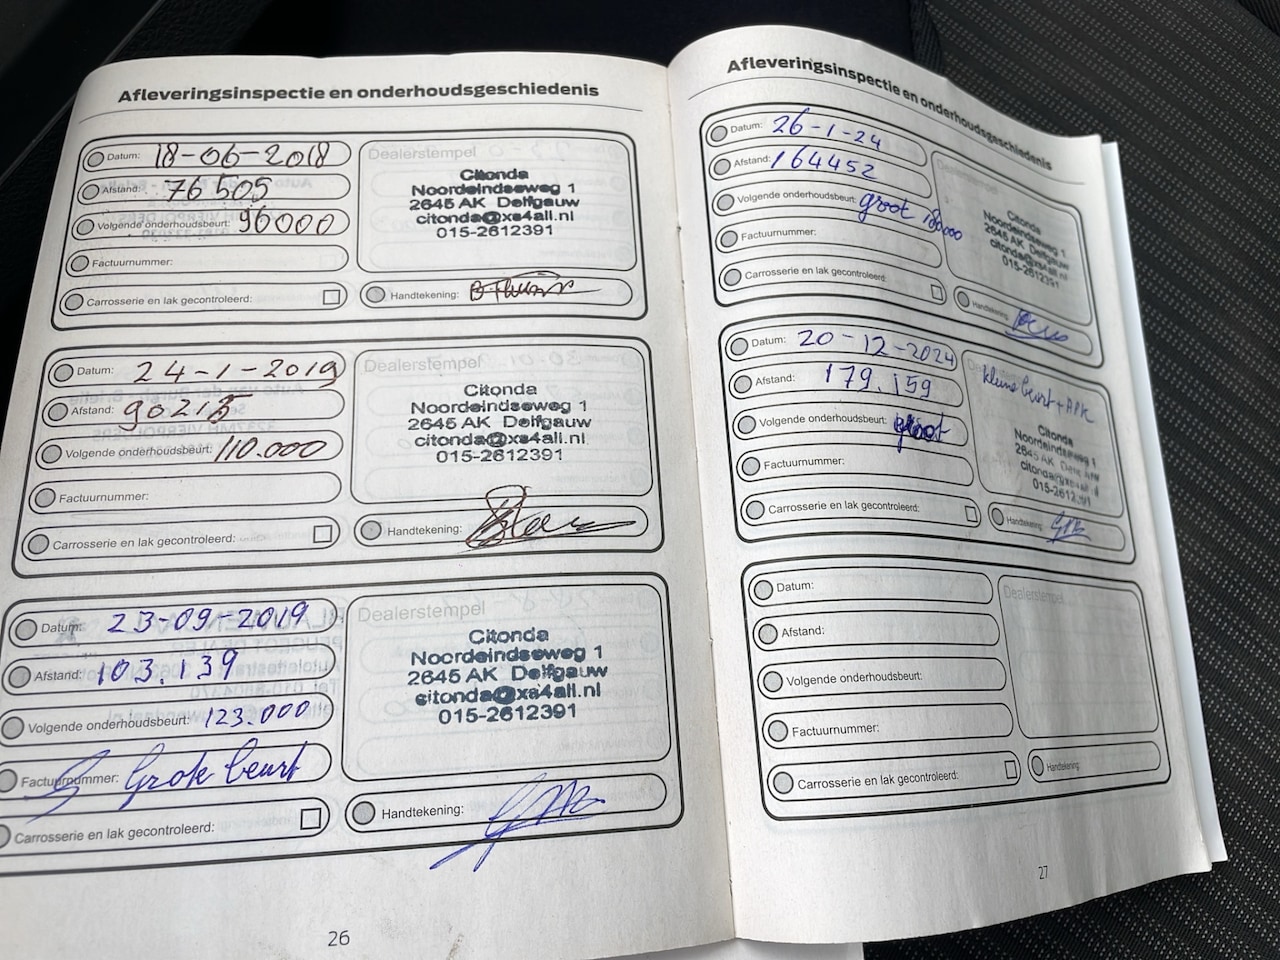 Afleveringsinspectie en onderhoudsgeschiedenis
Datum: 18-06-2018
Afstand: 76505
Volgende onderhoudsbeurt: 96000
Factuurnummer:
Carrosserie en lak gecontroleerd:
Dealerstempel
Citonda
Noordeindseweg 1
2645 AK Delfgauw
citonda@xs4all.nl
015-2612391
Handtekening:
Datum: 24-1-2019
Afstand: 90215
Volgende onderhoudsbeurt: 110.000
Factuurnummer:
Carrosserie en lak gecontroleerd:
Dealerstempel
Citonda
Noordeindseweg 1
2645 AK Delfgauw
citonda@xs4all.nl
015-2612391
Handtekening:
Datum: 23-09-2019
Afstand: 103.139
Volgende onderhoudsbeurt: 123.000
Factuurnummer: Grote beurt
Carrosserie en lak gecontroleerd:
Dealerstempel
Citonda
Noordeindseweg 1
2645 AK Delfgauw
citonda@xs4all.nl
015-2612391
Handtekening:
26
Afleveringsinspectie en onderhoudsgeschiedenis
Datum: 26-1-24
Afstand: 164452
Volgende onderhoudsbeurt: groot
Factuurnummer:
Carrosserie en lak gecontroleerd:
Dealerstempel
Citonda
Noordeindseweg 1
2645 AK Delfgauw
citonda@xs4all.nl
015-2612391
Handtekening:
Datum: 20-12-2024
Afstand: 179.159
Volgende onderhoudsbeurt: groot
Factuurnummer:
Carrosserie en lak gecontroleerd:
kleine beurt + APK
Citonda
Noordeindseweg 1
2645 AK
citonda@xs4all.nl
015-2612391
Handtekening:
Datum:
Afstand:
Volgende onderhoudsbeurt:
Factuurnummer:
Carrosserie en lak gecontroleerd:
Dealerstempel
Handtekening:
27